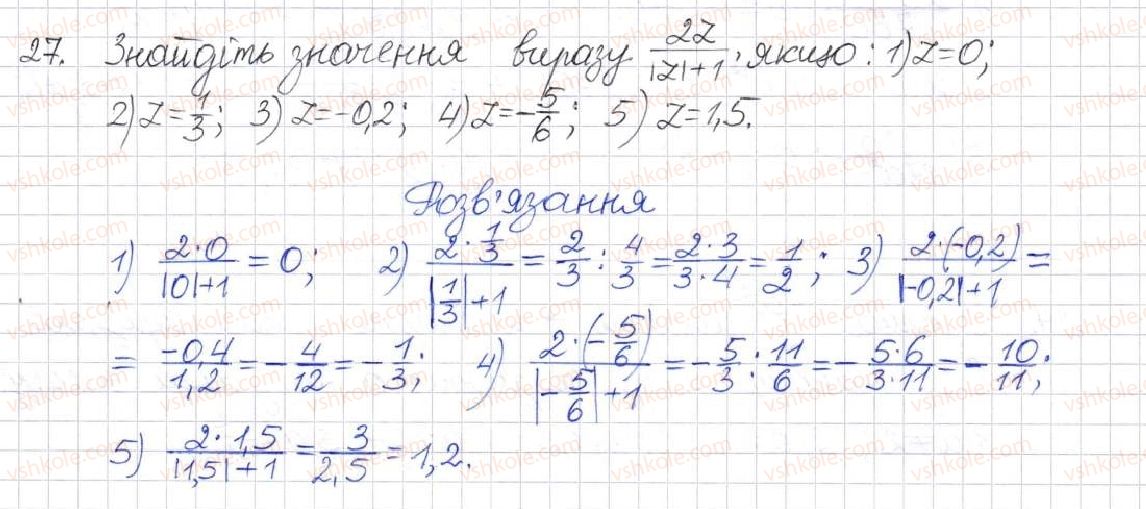 27. Знайдіть значення виразу 2z/(|z|+1), якщо: 1) z=0;
2) z=1/3; 3) z=-0,2; 4) z=-5/6; 5) z=1,5.
Розв'язання
1) (2·0)/(|0|+1) = 0; 2) (2·1/3)/(|1/3|+1) = 2/3 : 4/3 = (2·3)/(3·4) = 1/2; 3) (2·(-0,2))/(|-0,2|+1) =
= -0,4/1,2 = -4/12 = -1/3; 4) (2·(-5/6))/(|-5/6|+1) = -5/3 : 11/6 = -(5·6)/(3·11) = -10/11;
5) (2·1,5)/(|1,5|+1) = 3/2,5 = 1,2.
vshkole.com